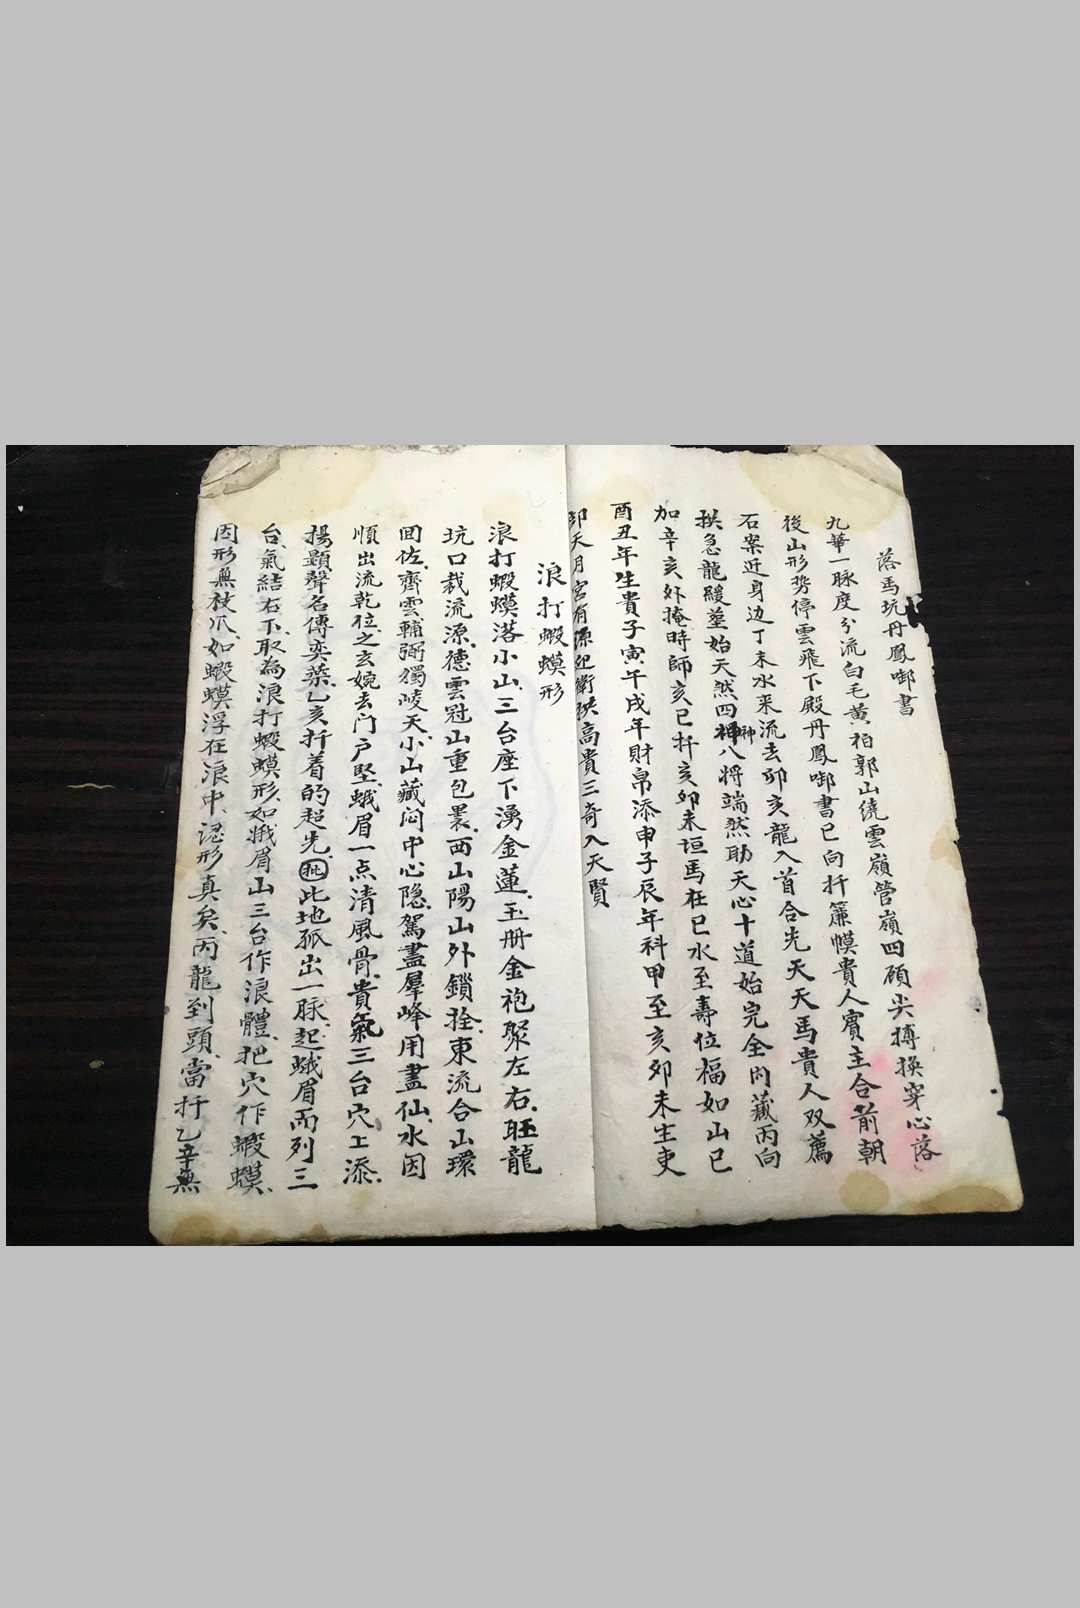 落馬坑丹鳳啣書
九華一脉度分流白毛黄柏郭山繞雲嶺管嶺四碩尖摶換穿心落
後山形势停雲飛下殿丹鳳啣書巳向扦簾幙貴人賓主合前朝
石案近身边丁未水来流去卯亥龍入首合先天天馬貴人双薦
挨急龍緩塟始天然四神八將端然助天心十道始完全内藏丙向
加辛亥外掩時師亥巳扦亥卯未垣馬在巳水至壽位福如山巳
酉丑年生貴子寅午戌年財帛添申子辰年科甲至亥卯未生吏
卯天月宫有源迎衛挾高貴三奇入天賢
浪打蝦蟆形
浪打蝦蟆落小山三台座下湧金蓮玉册金袍聚左右旺龍
坑口裁流源德雲冠山重包裹西山陽山外鎖拴東流合山環
回佐齊雲輔弼獨崚天小山藏闷中心隐駕盡羣峰用盡仙水因
順出流乾位之玄婉去门户坚蛾眉一点清風骨貴氣三台穴上添
揚顕聲名傳奕葉乙亥扦着的超先批此地孤出一脉起蛾眉而列三
台氣結右下取為浪打蝦蟆形如娥眉山三台作浪體把穴作蝦蟆
因形無枝爪如蝦蟆浮在浪中認形真矣丙龍到頭當扦乙辛無